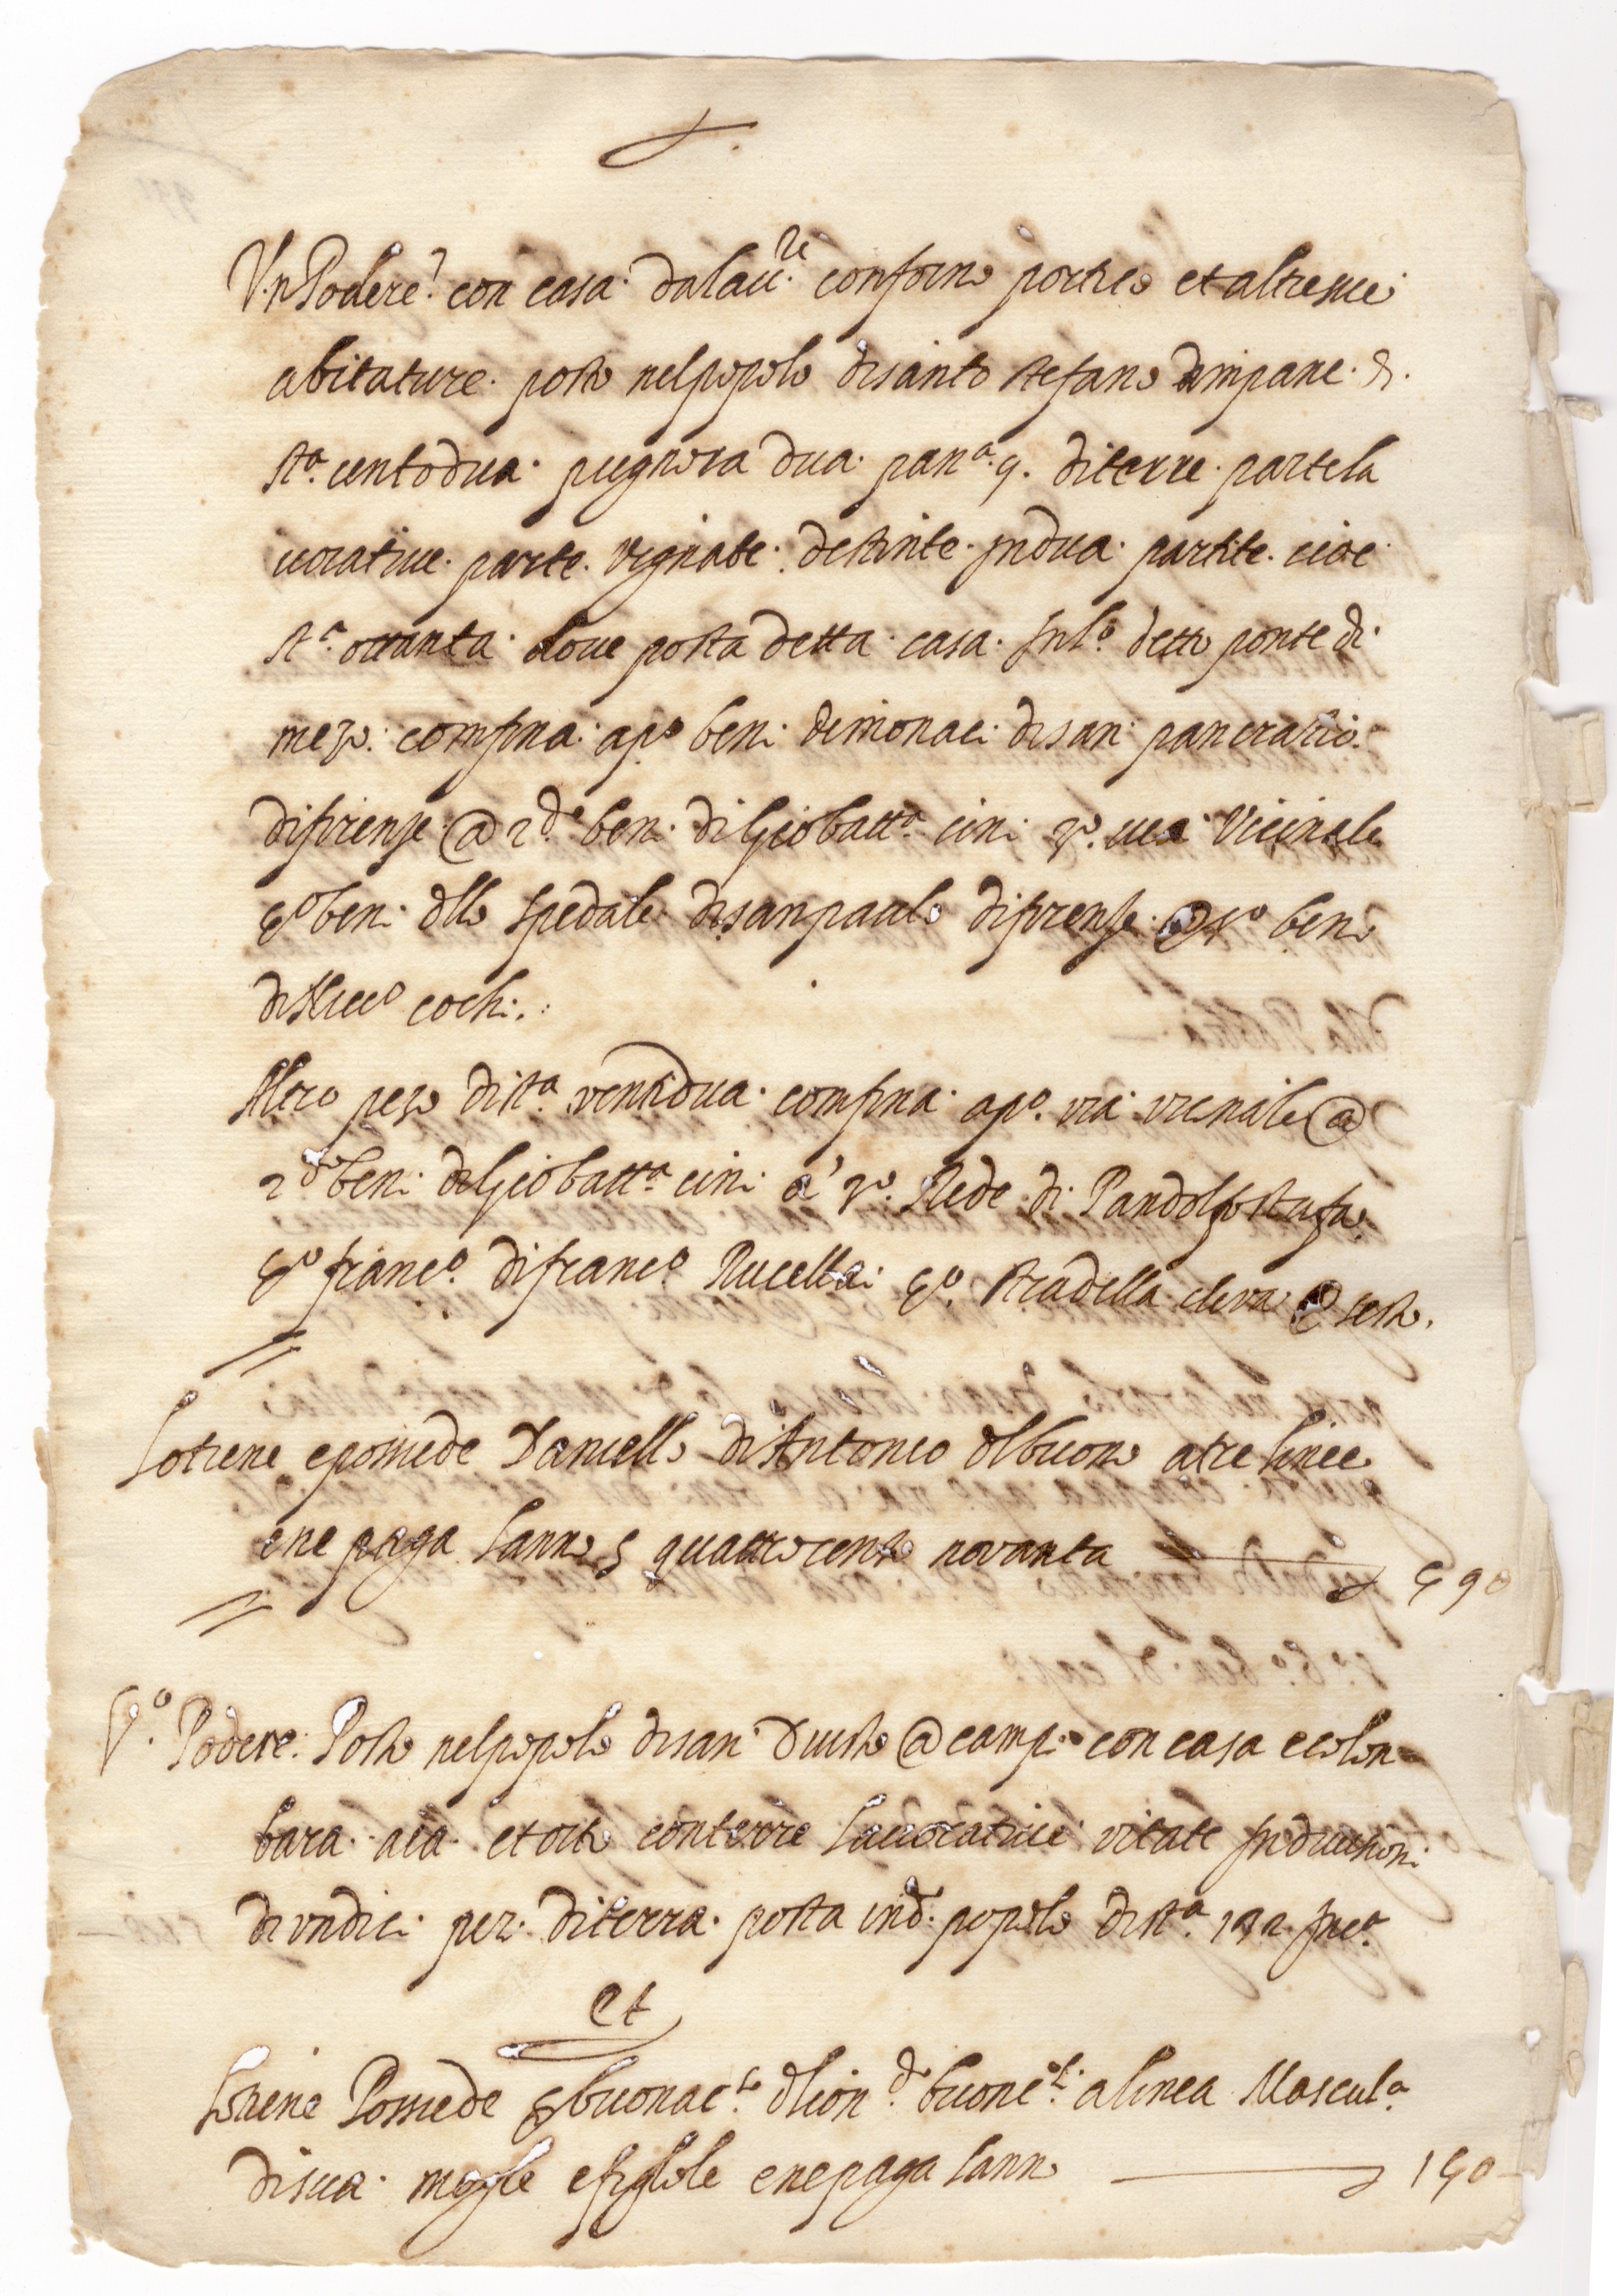 Vn Podere con casa dalau.re conforno portico et altre sue
abitature posto nelpopolo disanto stefano ampane di
sta. centodua pugnora dua pana. 9. diterre partela
uoratiue parte vignate destinte Indua partite cioe
sta. ottanta doue posta detta casa Inlo. detto ponte di
mezo confina apo beni demonaci disan pancratio
difirenze @ 2do beni diGiobatta. cini 3o. uia Vicinale
4o beni dllo spedale disanpaulo difirenze @ 5o beni
di cochi
Altro pezo dista. ventidua confina apo. via vicinale @
2do beni diGiobatta. cini a 3o. Rede di Pandolfo stufa
4o franco. difranco. Rucellai 4o. stradella cheva @ sesto.
Lotiene epossiede Daniello diAntonio dlbuono atre linee
ene paga lanno quattrocento novanta 490
Vo. Podere Posto nelpopolo disan Giusto @ campi con casa ecolon
bara aia et orto conterre Lauoratiue vitate
divndici pez. diterra posta ind. popolo dista. 132 Inca.
et
Lotiene Possiede buonac.to dlion.do buonc.ti alinea Mascula.
disua moglie efigliole enepaga lanno 140